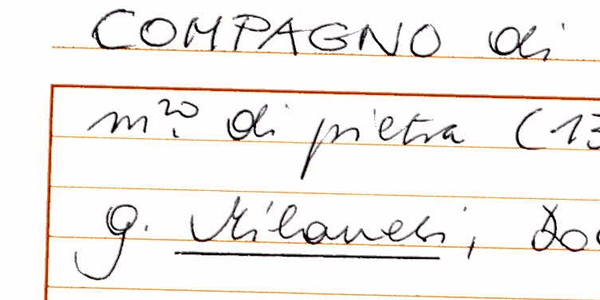 COMPAGNO di
m.ro di pietra (13
g. Milanesi, Doc